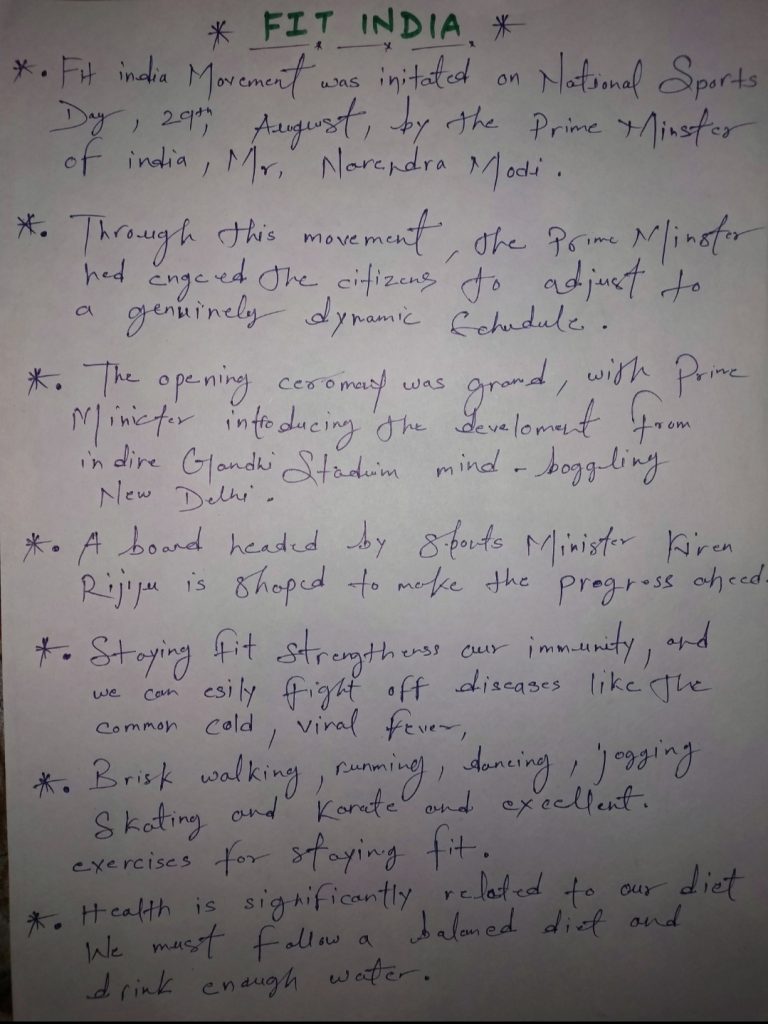 * FIT INDIA *
*. Fit india Movement was initated on National Sports
Day, 29th, August, by the Prime Minster
of india, Mr, Narendra Modi.
*. Through this movement, the Prime Minster
hed engaed the citizens to adjust to
a genuinely dynamic Schedule.
*. The opening ceromay was grand, with Prime
Minicter introducing the develoment from
indire Gandhi Stadium mind - boggling
New Delhi.
*. A board headed by Sports Minister Kiren
Rijiju is shaped to make the progress aheed.
*. Staying fit strengthenss our immunity, and
we can esily fight off diseases like the
common cold, viral fever,
*. Brisk walking, running, dancing, jogging
Skating and Karate and excellent.
exercises for staying fit.
*. Health is significantly related to our diet
We must follow a balaned diet and
drink enough water.